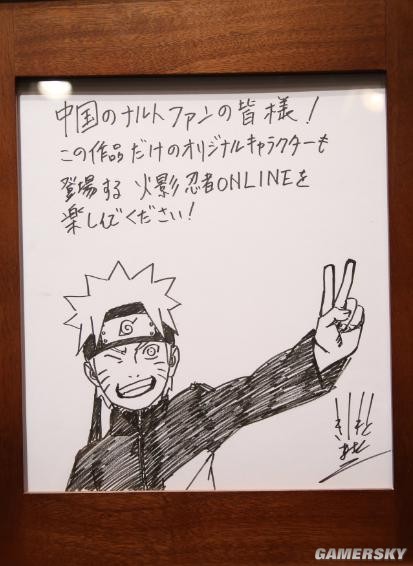 中国のナルトファンの皆様！
この作品だけのオリジナルキャラクターも
登場する 火影忍者ONLINEを
楽しんでください！
GAMERSKY